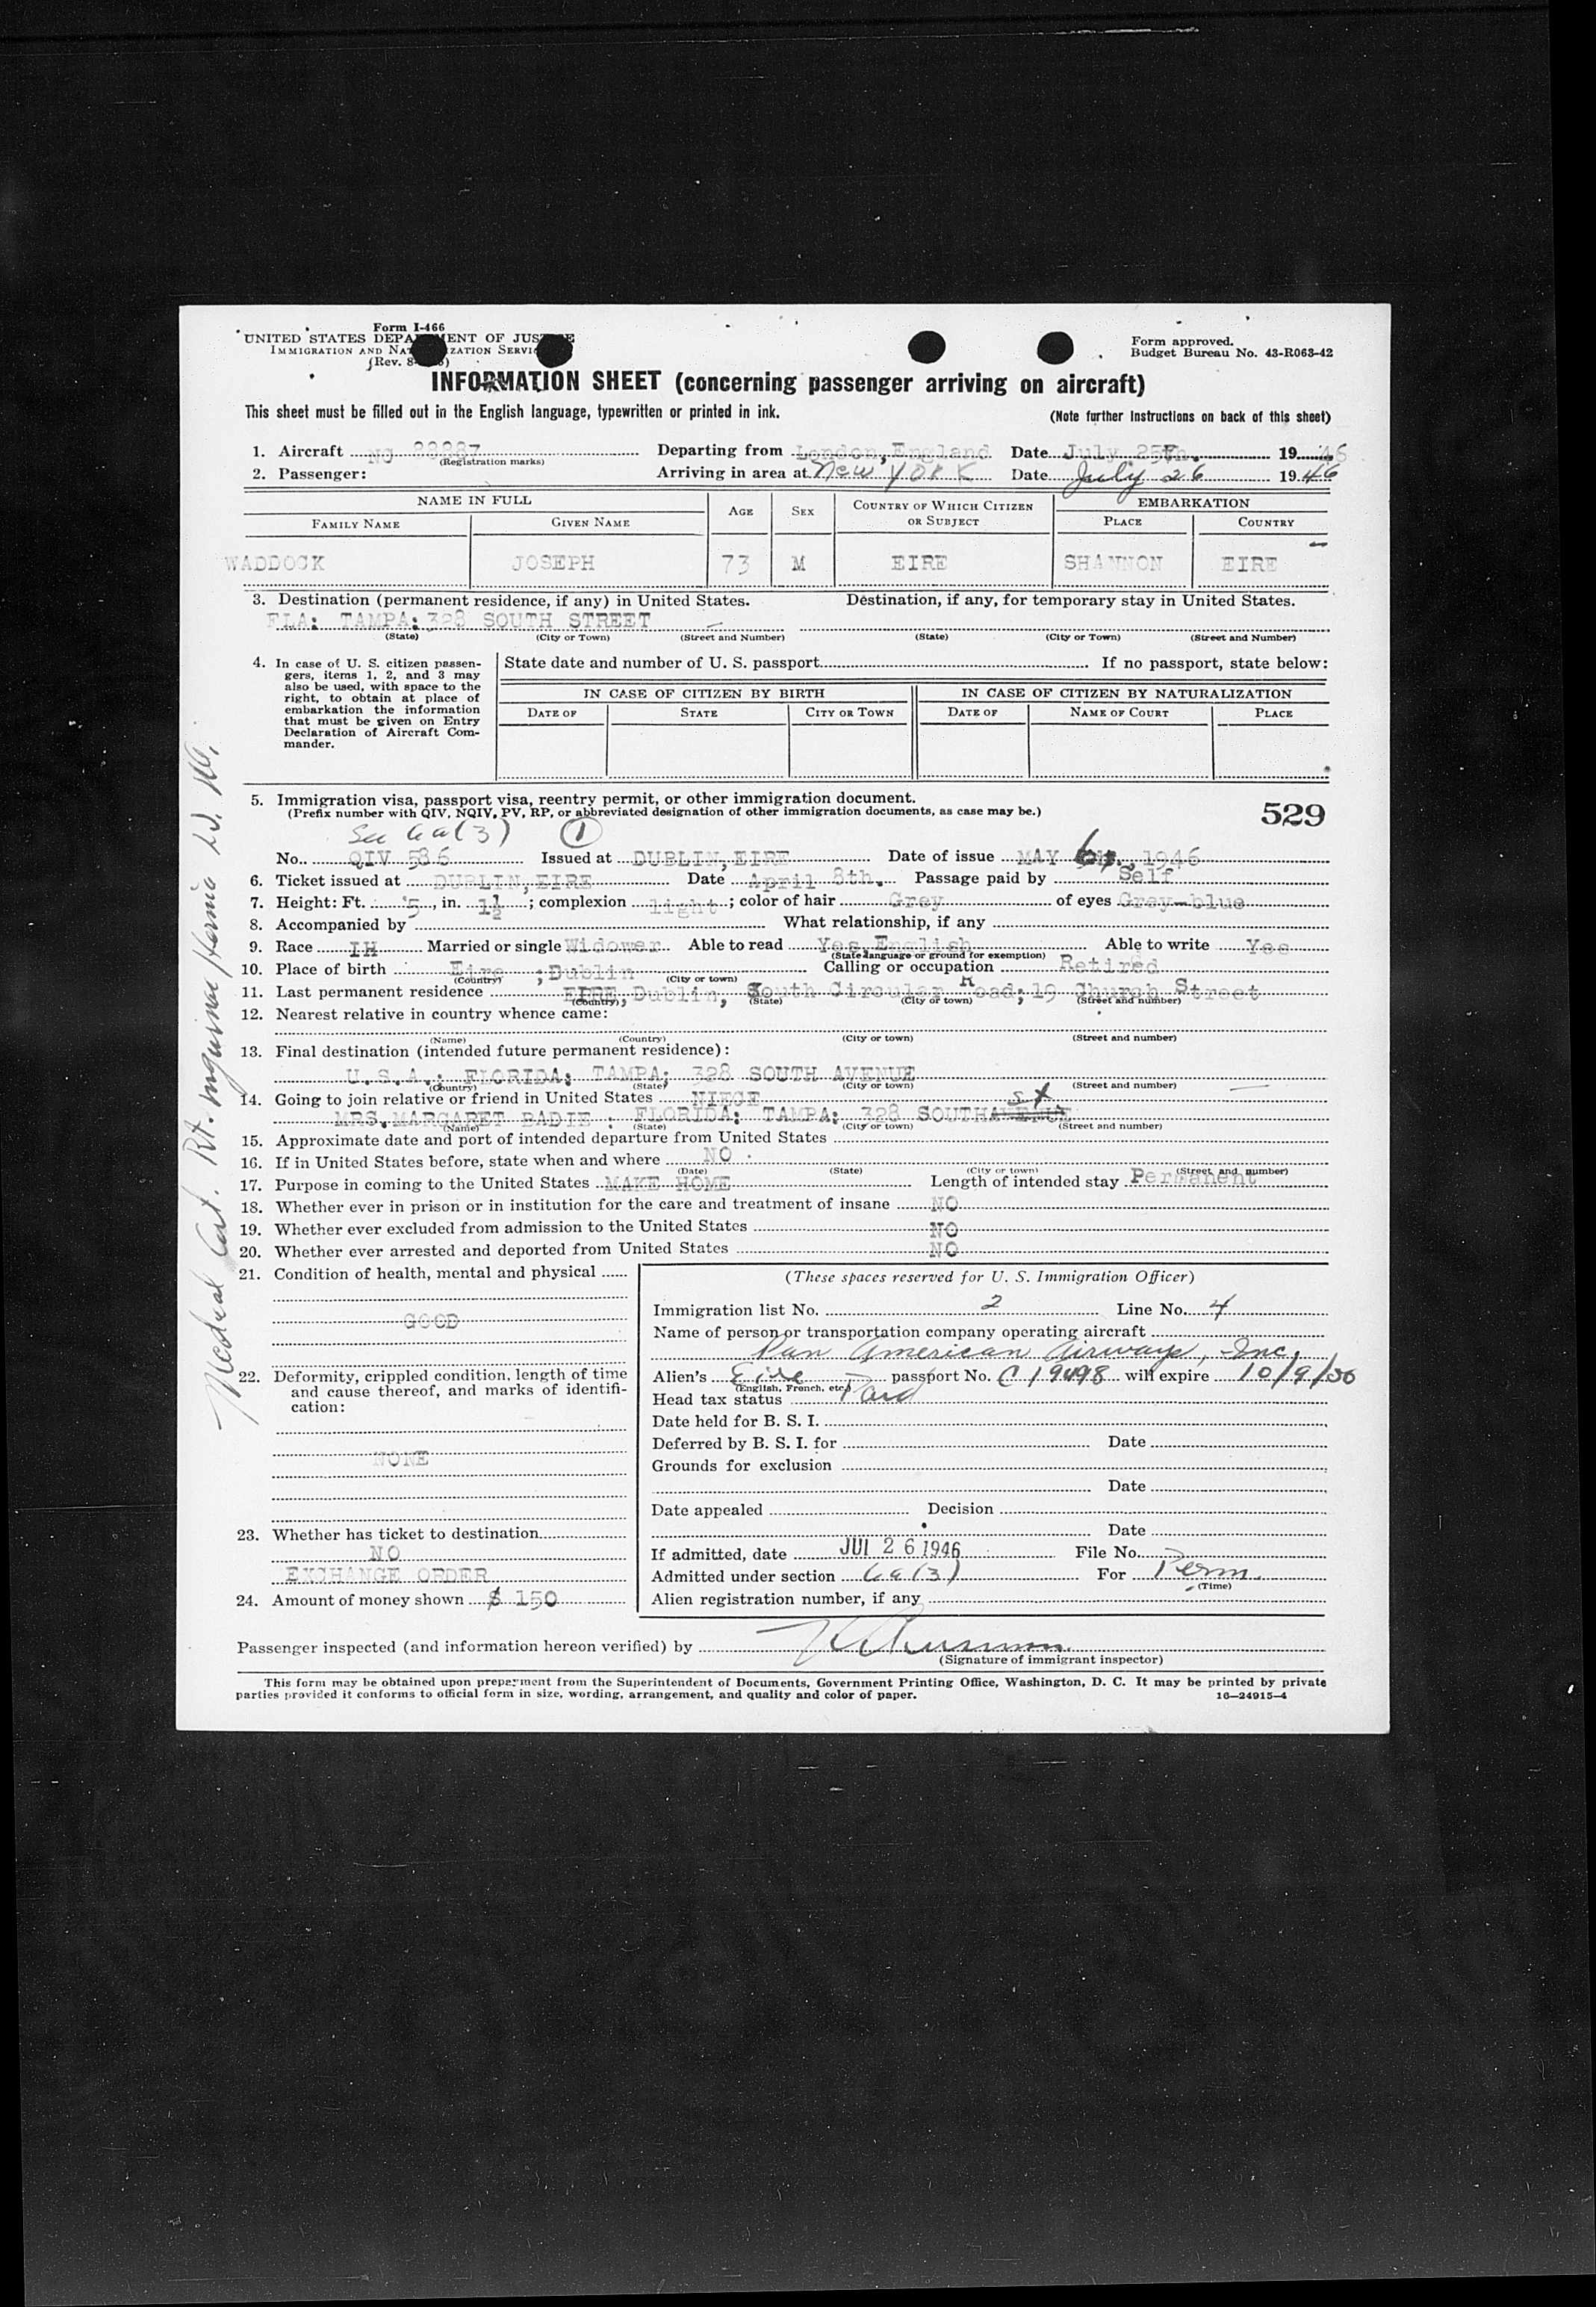 Form I-466
UNITED STATES DEPA MENT OF JUS E
IMMIGRATION AND NAT IZATION SERVI
(Rev. 8- )
Form approved.
Budget Bureau No. 43-R063-42
INFORMATION SHEET (concerning passenger arriving on aircraft)
This sheet must be filled out in the English language, typewritten or printed in ink.
(Note further instructions on back of this sheet)
1. Aircraft NC 88887 Departing from London, England Date July 25th. 1946
(Registration marks)
2. Passenger: Arriving in area at New York Date July 26 1946
NAME IN FULL AGE SEX COUNTRY OF WHICH CITIZEN OR SUBJECT EMBARKATION
FAMILY NAME GIVEN NAME PLACE COUNTRY
WADDOCK JOSEPH 73 M EIRE SHANNON EIRE
3. Destination (permanent residence, if any) in United States. Destination, if any, for temporary stay in United States.
FLA: TAMPA: 328 SOUTH STREET
(State) (City or Town) (Street and Number) (State) (City or Town) (Street and Number)
4. In case of U. S. citizen passen-
gers, items 1, 2, and 3 may
also be used, with space to the
right, to obtain at place of
embarkation the information
that must be given on Entry
Declaration of Aircraft Com-
mander.
State date and number of U. S. passport If no passport, state below:
IN CASE OF CITIZEN BY BIRTH IN CASE OF CITIZEN BY NATURALIZATION
DATE OF STATE CITY OR TOWN DATE OF NAME OF COURT PLACE
5. Immigration visa, passport visa, reentry permit, or other immigration document.
(Prefix number with QIV, NQIV, PV, RP, or abbreviated designation of other immigration documents, as case may be.)
529
Sec 6a(3) 1
No. QIV 586 Issued at DUBLIN, EIRE Date of issue MAY 6th., 1946
6. Ticket issued at DUBLIN, EIRE Date April 8th. Passage paid by Self
7. Height: Ft. 5, in. 1½; complexion light; color of hair Grey of eyes Grey-blue
8. Accompanied by What relationship, if any
9. Race IH Married or single Widower Able to read Yes, English Able to write Yes
(State language or ground for exemption)
10. Place of birth Eire ; Dublin Calling or occupation Retired
(Country) (City or town)
11. Last permanent residence EIRE, Dublin, South Circular Road; 19 Church Street
(Country) (State) (City or town) (Street and number)
12. Nearest relative in country whence came:
(Name) (Country) (City or town) (Street and number)
13. Final destination (intended future permanent residence):
U.S.A.: FLORIDA: TAMPA; 328 SOUTH AVENUE
(Country) (State) (City or town) (Street and number)
14. Going to join relative or friend in United States NIECE
MRS. MARGARET BADIE : FLORIDA: TAMPA: 328 SOUTH AVENUE St
(Name) (State) (City or town) (Street and number)
15. Approximate date and port of intended departure from United States
16. If in United States before, state when and where NO
(Date) (State) (City or town) (Street and number)
17. Purpose in coming to the United States MAKE HOME Length of intended stay Permanent
18. Whether ever in prison or in institution for the care and treatment of insane NO
19. Whether ever excluded from admission to the United States NO
20. Whether ever arrested and deported from United States NO
21. Condition of health, mental and physical
GOOD
22. Deformity, crippled condition, length of time
and cause thereof, and marks of identifi-
cation:
NONE
23. Whether has ticket to destination
NO
EXCHANGE ORDER
24. Amount of money shown $ 150
(These spaces reserved for U. S. Immigration Officer)
Immigration list No. 2 Line No. 4
Name of person or transportation company operating aircraft
Pan American Airways, Inc.
Alien's Eire passport No. C 19498 will expire 10/9/50
(English, French, etc.)
Head tax status Paid
Date held for B. S. I.
Deferred by B. S. I. for Date
Grounds for exclusion
Date
Date appealed Decision
Date
If admitted, date JUL 26 1946 File No.
Admitted under section 6a(3) For Perm.
(Time)
Alien registration number, if any
Passenger inspected (and information hereon verified) by
(Signature of immigrant inspector)
This form may be obtained upon prepayment from the Superintendent of Documents, Government Printing Office, Washington, D. C. It may be printed by private
parties provided it conforms to official form in size, wording, arrangement, and quality and color of paper.
16—24915-4
Medical Cert. Rt. inguinal Hernia